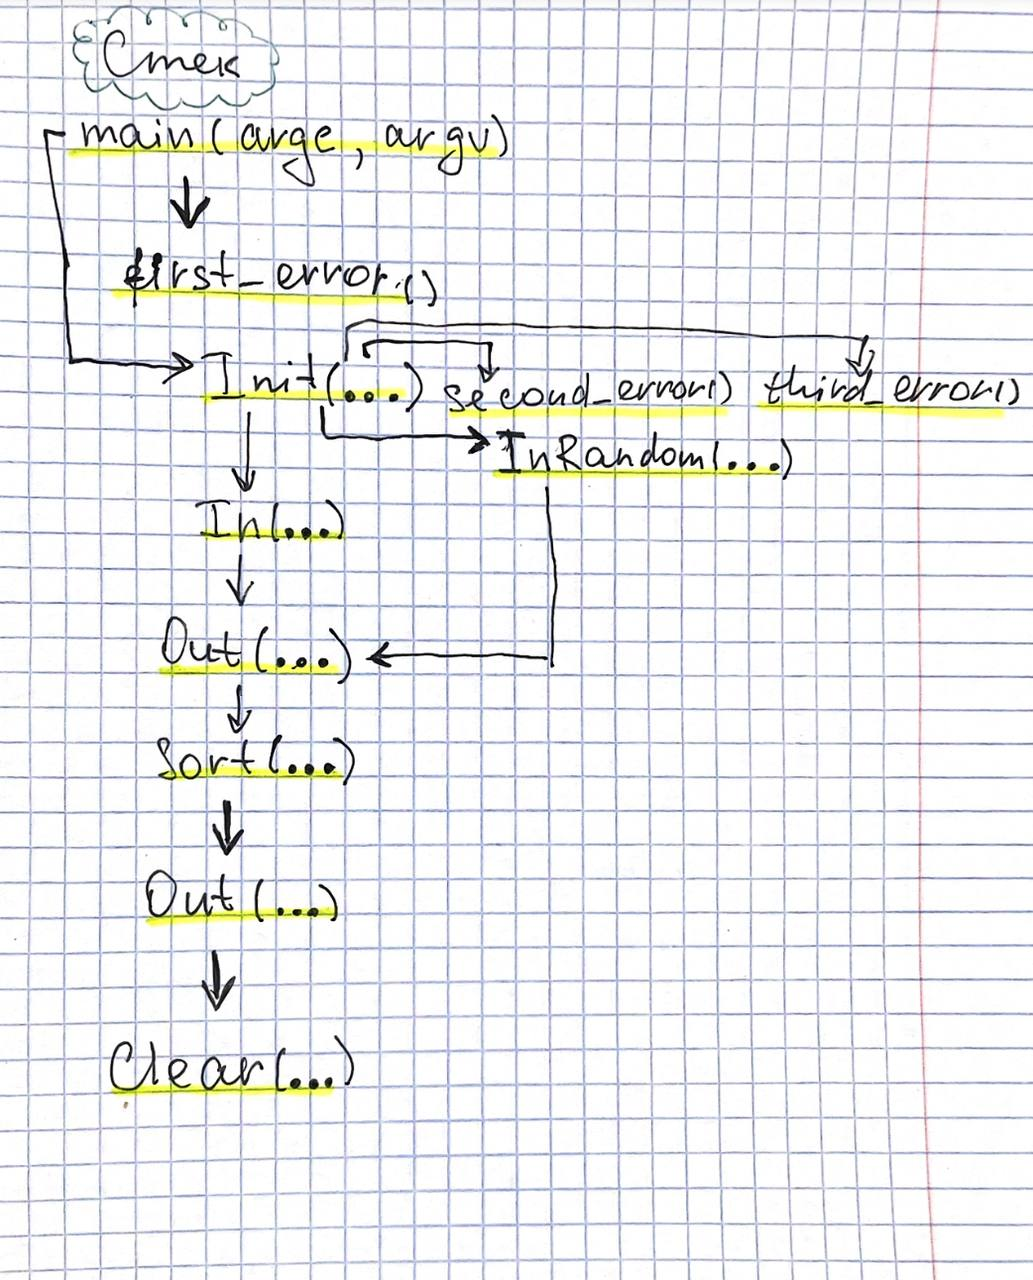 Стек
main(argc, argv)
first_error()
Init(...) second_error() third_error()
InRandom(...)
In(...)
Out(...)
Sort(...)
Out(...)
Clear(...)